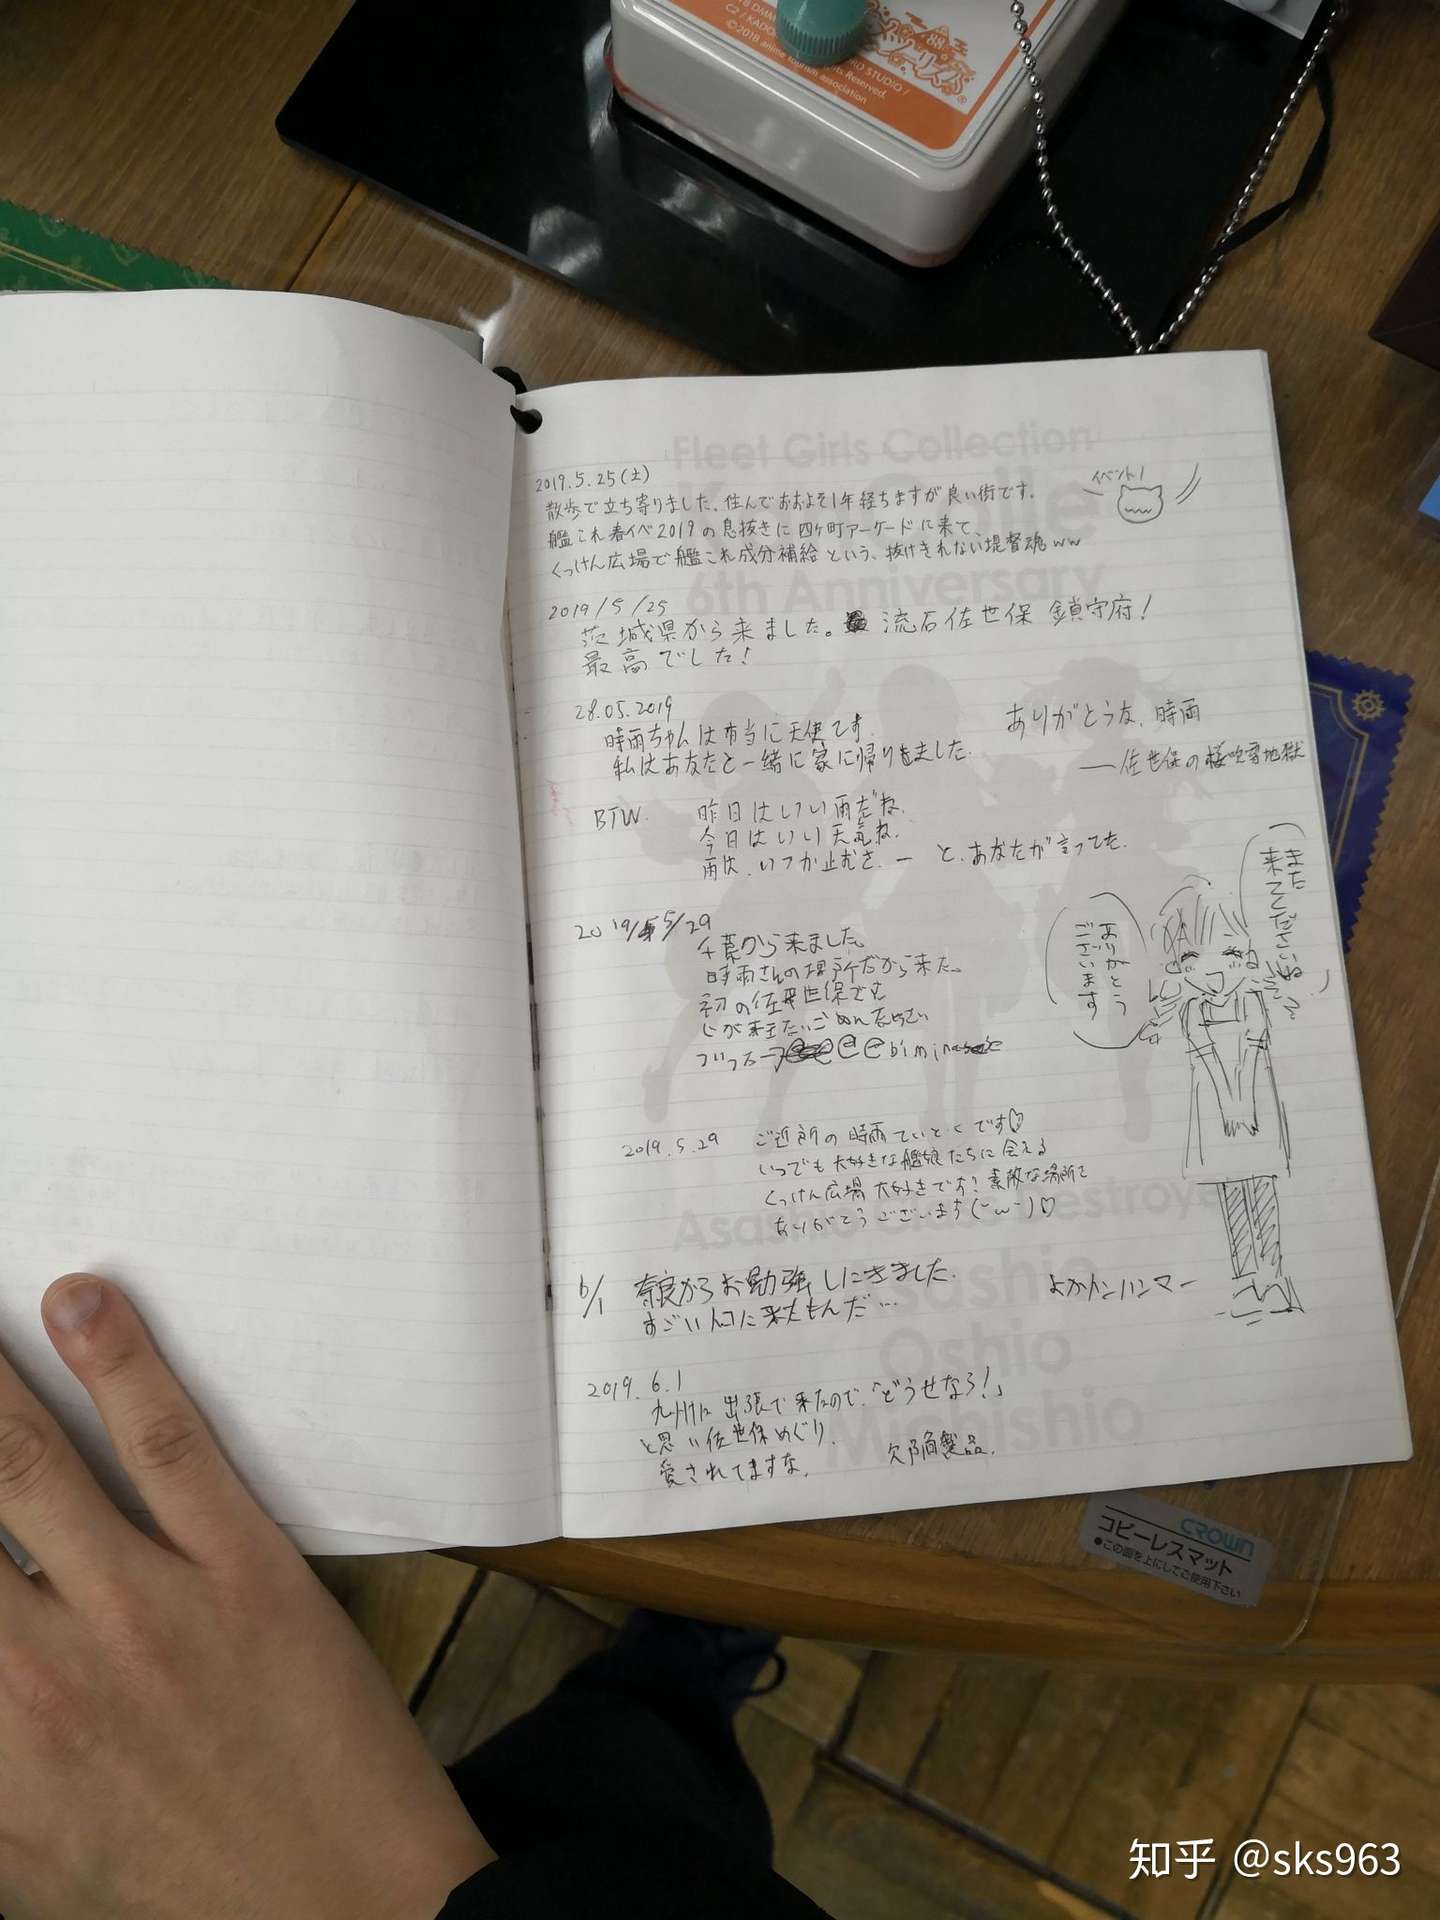 TB DMM
C2 / KADO
STUDIO /
©2018 anime tourism association
Rights Reserved.
88
Fleet Girls Collection
Kan Colle
6th Anniversary
2019.5.25(土)
イベント!
散歩で立ち寄りました。住んでおおよそ1年経ちますが良い街です。
艦これ春イベ2019の息抜きに四ヶ町アーケードに来て、
くっけん広場で艦これ成分補給という、抜けきれない提督魂ww
2019/5/25
茨城県から来ました。流石佐世保 鎮守府!
最高でした!
28.05.2019
時雨ちゃんは本当に天使です。
私はあなたと一緒に家に帰りました。
ありがとうな、時雨
―佐世保の
BTW. 昨日はいい雨だね。
今日はいい天気ね。
雨は、いつか止むさ、ー と、あなたが言ってた。
また
来てくださいね
ありがとう
ございます
2019/5/29
千葉から来ました。
時雨さんの場所だから来た。
初の佐世保です
2019.5.29 ご近所の時雨ていとくです♡
いつでも大好きな艦娘たちに会える
くっけん広場大好きです!素敵な場所を
ありがとうございます(˘ω˘)♡
Asashio Class Destroyer
Asashio
Oshio
Michishio
6/1 奈良からお勉強しにきました。
すごい人口に来たもんだ…
よかトンハンマー
2019.6.1
九州に出張で来たので、「どうせなら!」
と思い佐世保めぐり。
愛されてますな。
欠陥製品。
CROWN
コピーレスマット
●この面を上にしてご使用下さい
知乎 @sks963